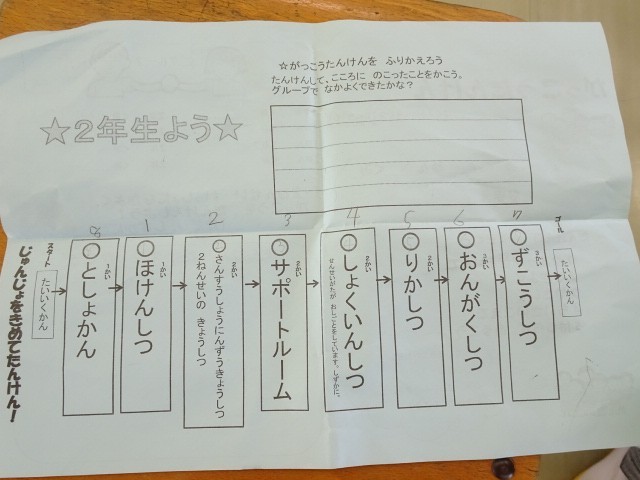 ☆がっこうたんけんを ふりかえろう
たんけんして、こころに のこったことをかこう。
グループで なかよくできたかな？
☆２年生よう☆
じゅんじょをきめてたんけん！
スタート
たいいくかん
8
1かい
○としょかん
1
1かい
○ほけんしつ
2
2かい
○さんすうしょうにんずうきょうしつ
２ねんせいの きょうしつ
3
2かい
○サポートルーム
4
2かい
○しょくいんしつ
せんせいがたが おしごとをしています。しずかに。
5
2かい
○りかしつ
6
3かい
○おんがくしつ
7
3かい
○ずこうしつ
ゴール
たいいくかん